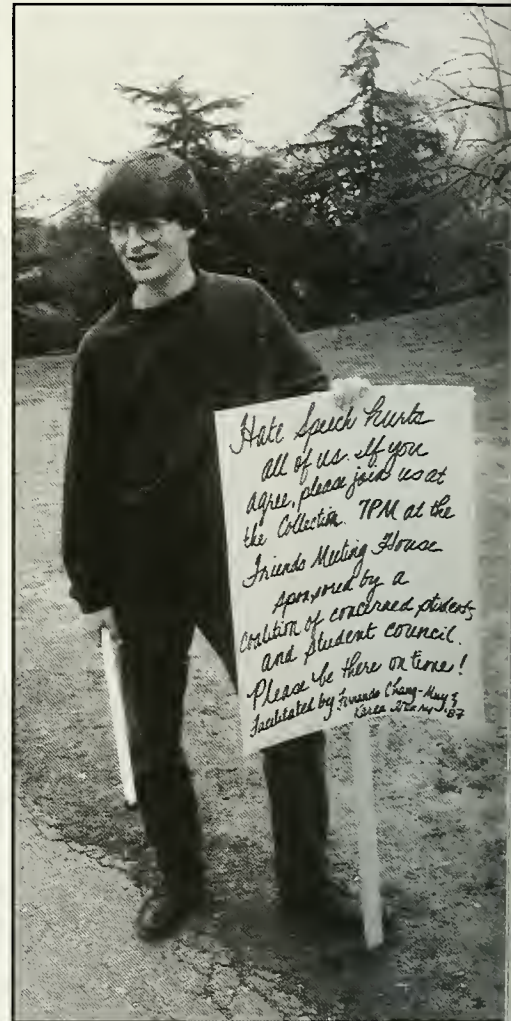 Hate Speech hurts
all of us. If you
agree, please join us at
the Collection. 7PM at the
Friends Meeting House
sponsored by a
Coalition of concerned students
and student council.
Please be there on time!
Facilitated by Chang-Muy &
Karen '87